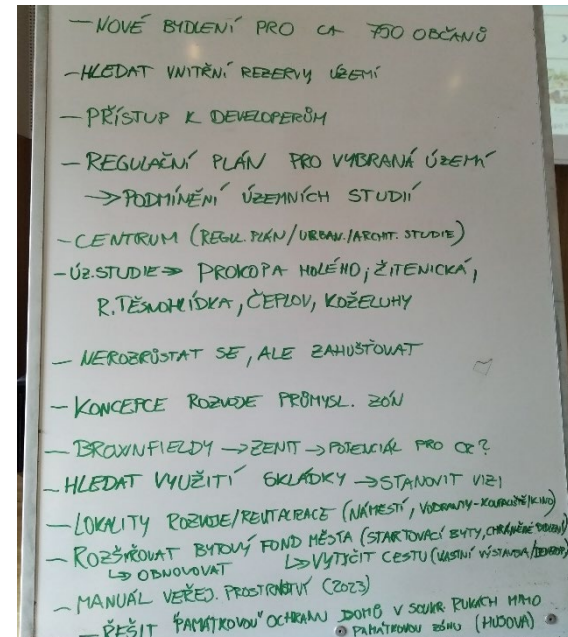 — NOVÉ BYDLENÍ PRO CA 750 OBČANŮ
— HLEDAT VNITŘNÍ REZERVY ÚZEMÍ
— PŘÍSTUP K DEVELOPERŮM
— REGULAČNÍ PLÁN PRO VYBRANÁ ÚZEMÍ
→ PODMÍNĚNÍ ÚZEMNÍCH STUDIÍ
— CENTRUM (REGUL. PLÁN/URBAN./ARCHIT. STUDIE)
— ÚZ. STUDIE → PROKOPA HOLÉHO, ŽITENICKÁ,
R. TĚSNOHLÍDKA, ČEPLOV, KOŽELUHY
— NEROZRŮSTAT SE, ALE ZAHUŠŤOVAT
— KONCEPCE ROZVOJE PRŮMYSL. ZÓN
— BROWNFIELDY → ZENIT → POTENCIÁL PRO CR?
— HLEDAT VYUŽITÍ SKLÁDKY → STANOVIT VIZI
— LOKALITY ROZVOJE/REVITALIZACE (NÁMĚSTÍ, VODRANTY-KOUPALIŠTĚ/KINO)
— ROZŠIŘOVAT BYTOVÝ FOND MĚSTA (STARTOVACÍ BYTY, CHRÁNĚNÉ BYDLENÍ)
↳ OBNOVOVAT ↳ VYTYČIT CESTU (VLASTNÍ VÝSTAVBA/DEVELOP.)
— MANUÁL VEŘEJ. PROSTRANSTVÍ (2023)
— ŘEŠIT "PAMÁTKOVOU" OCHRANU DOMŮ V SOUKR. RUKÁCH MIMO
PAMÁTKOVOU ZÓNU (HUSOVA)